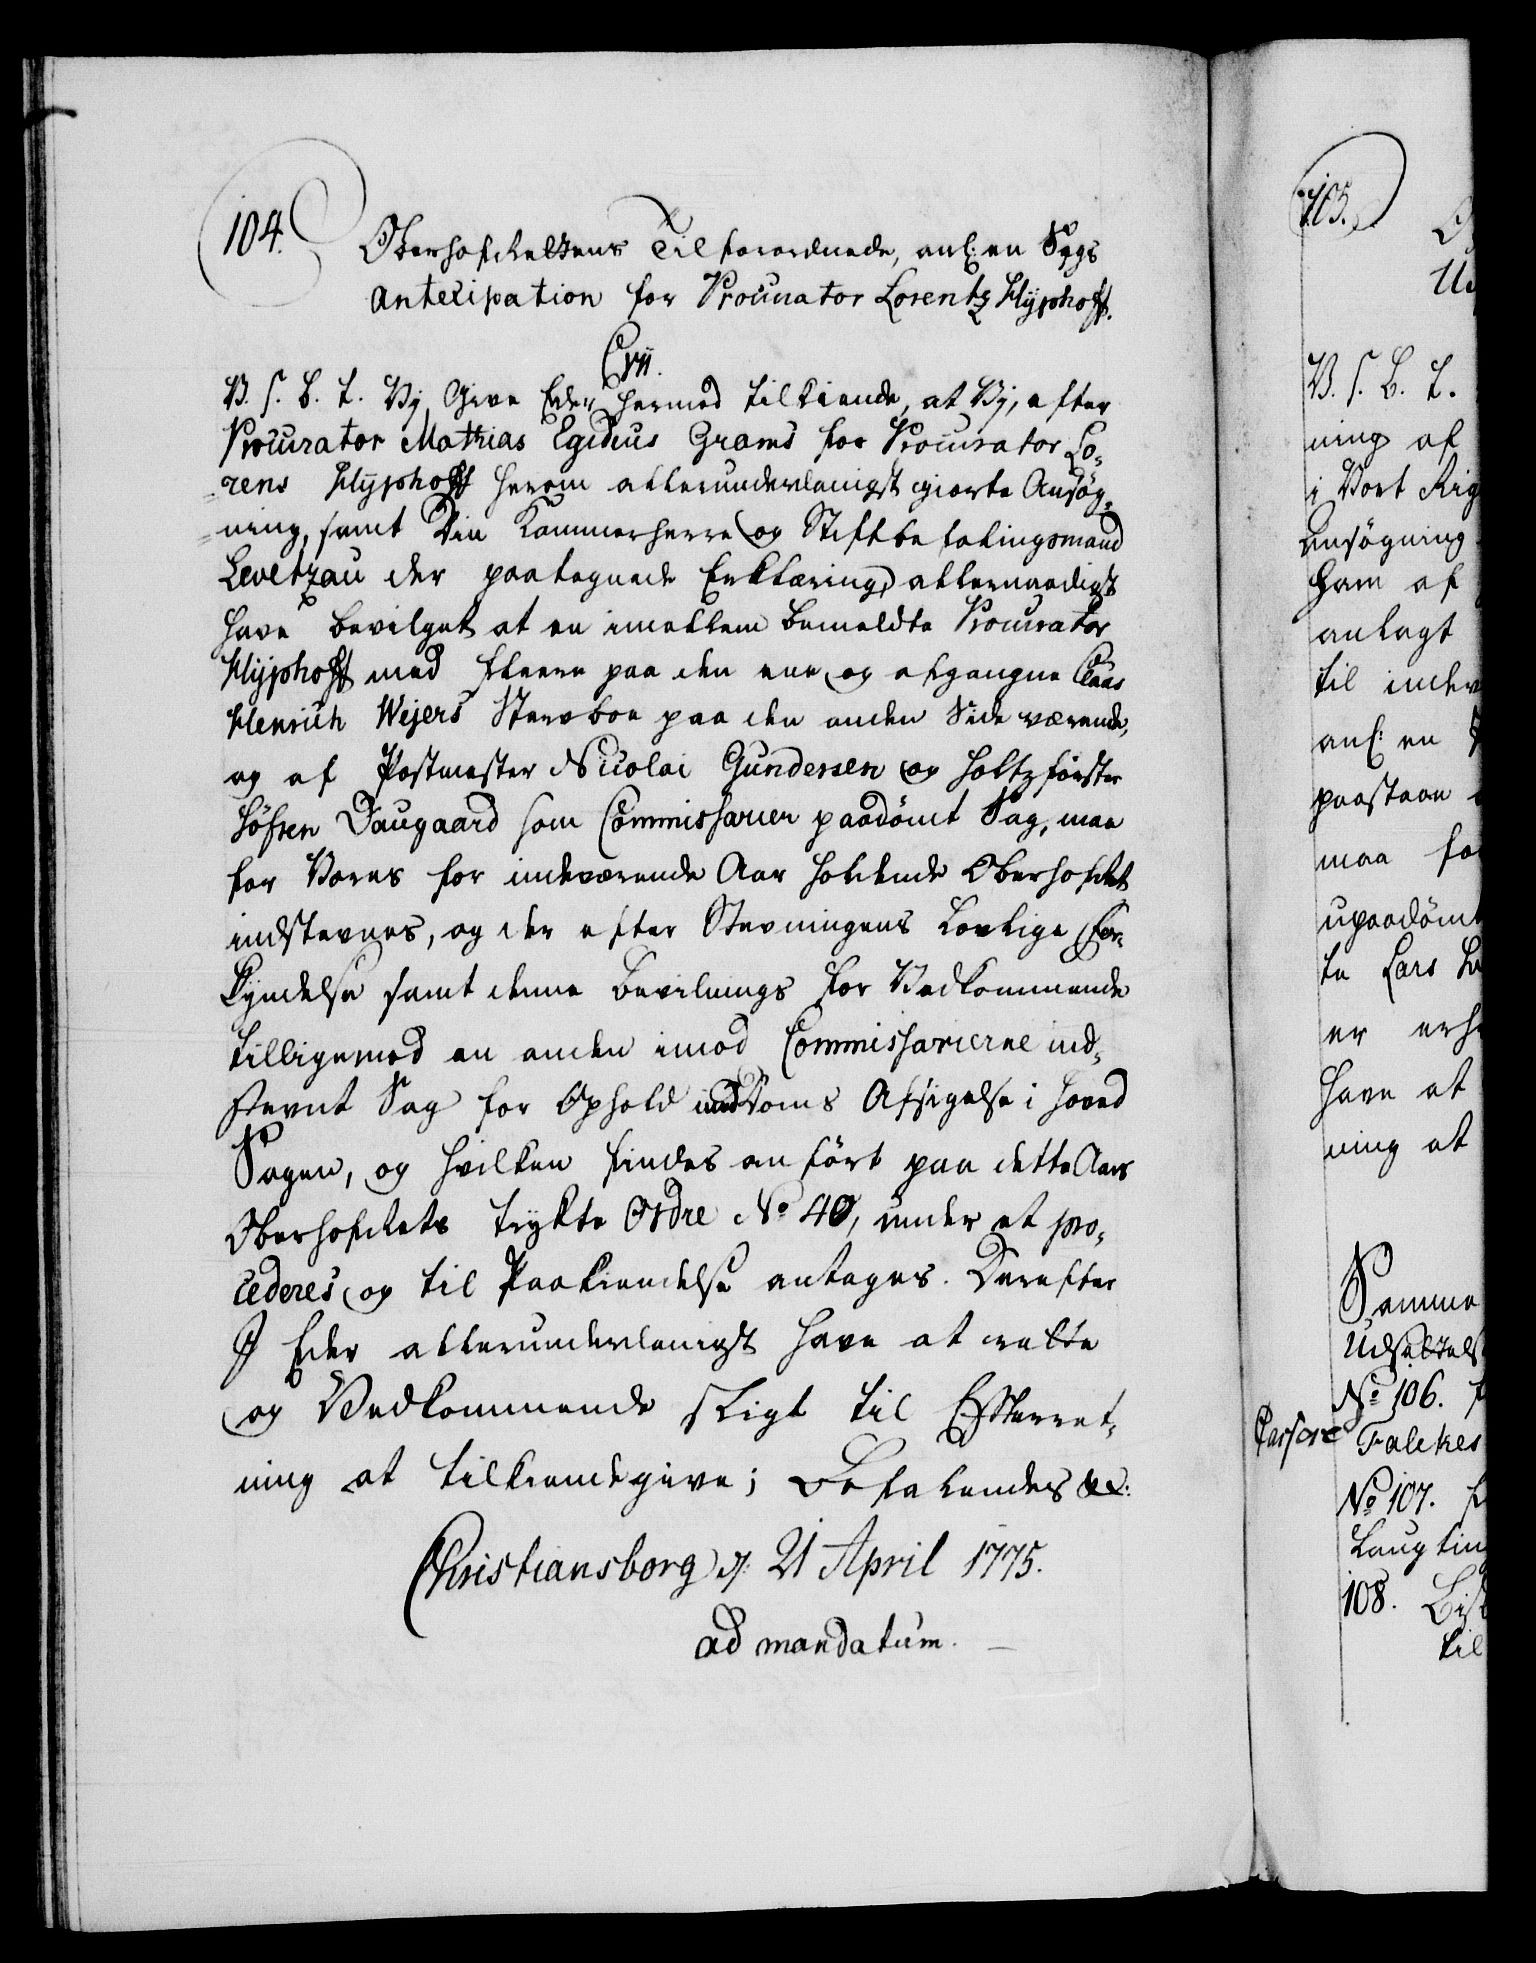 104.
Oberhofrettens Tilforordnede, anl: en Sags
Antecipation for Procurator Lorentz Hÿphoff.
C VII.
V. S. G. T. Vy Give Eder hermed tilkiende, at Vy, efter
Procurator Mathias Egidius Grams for Procurator Lo-
rens Hÿphoff herom allerunderdanigst giorte Ansøg-
ning, samt Din Kammerherre og Stiftbefalingsmand
Levetzau der paategnede Erklæring, allernaadigst
have bevilget at en imellem bemeldte Procurator
Hÿphoff med fleere paa den ene, og afgangne Claus
Henrich Weÿers Stervboe paa den anden Side værende,
og af Postmester Nicolai Gundersen og Holtzførster
Søfren Daugaard som Commissarier paadømt Sag, maa
for Vores for indeværende Aar holdende Oberhofret
indstevnes, og der efter Stevningens lovlige For-
kyndelse samt denne Bevilnings for Vedkommende
tilligemed en anden imod Commissarierne ind-
stevnt Sag for Ophold med Doms Afsigelse i Hoved
Sagen, og hvilken findes anført paa dette Aars
Oberhofrets trykte Ordre No 40, under et pro-
cederes og til Paakiendelse antages. Derefter
I Eder allerunderdanigst have at rette
og Vedkommende sligt til Efterret-
ning at tilkiendegive; Befalendes &c:
Christiansborg d: 21 April 1775.
ad mandatum.
105.
V. S. G. T.
ning af
i Vort Rig
Ansøgning
ham af
anlagt
til indev
anl: en
paastaae
maa for
upaadømt
te Lars
er erh
have at
ning at
Samme
Udsættels
No 106.
Falckes
No 107.
Laugting
108.
til